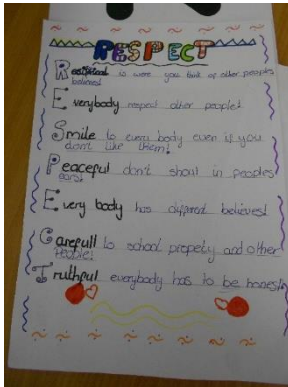 RESPECT
Respect is were you think of other peoples
believes!
Everybody respect other people!
Smile to every body even is you
don't like them!
Peaceful don't shout in peoples
ears!
Every body has different believes!
Carefull to school propety and other
People!
Truthful everybody has to be honest